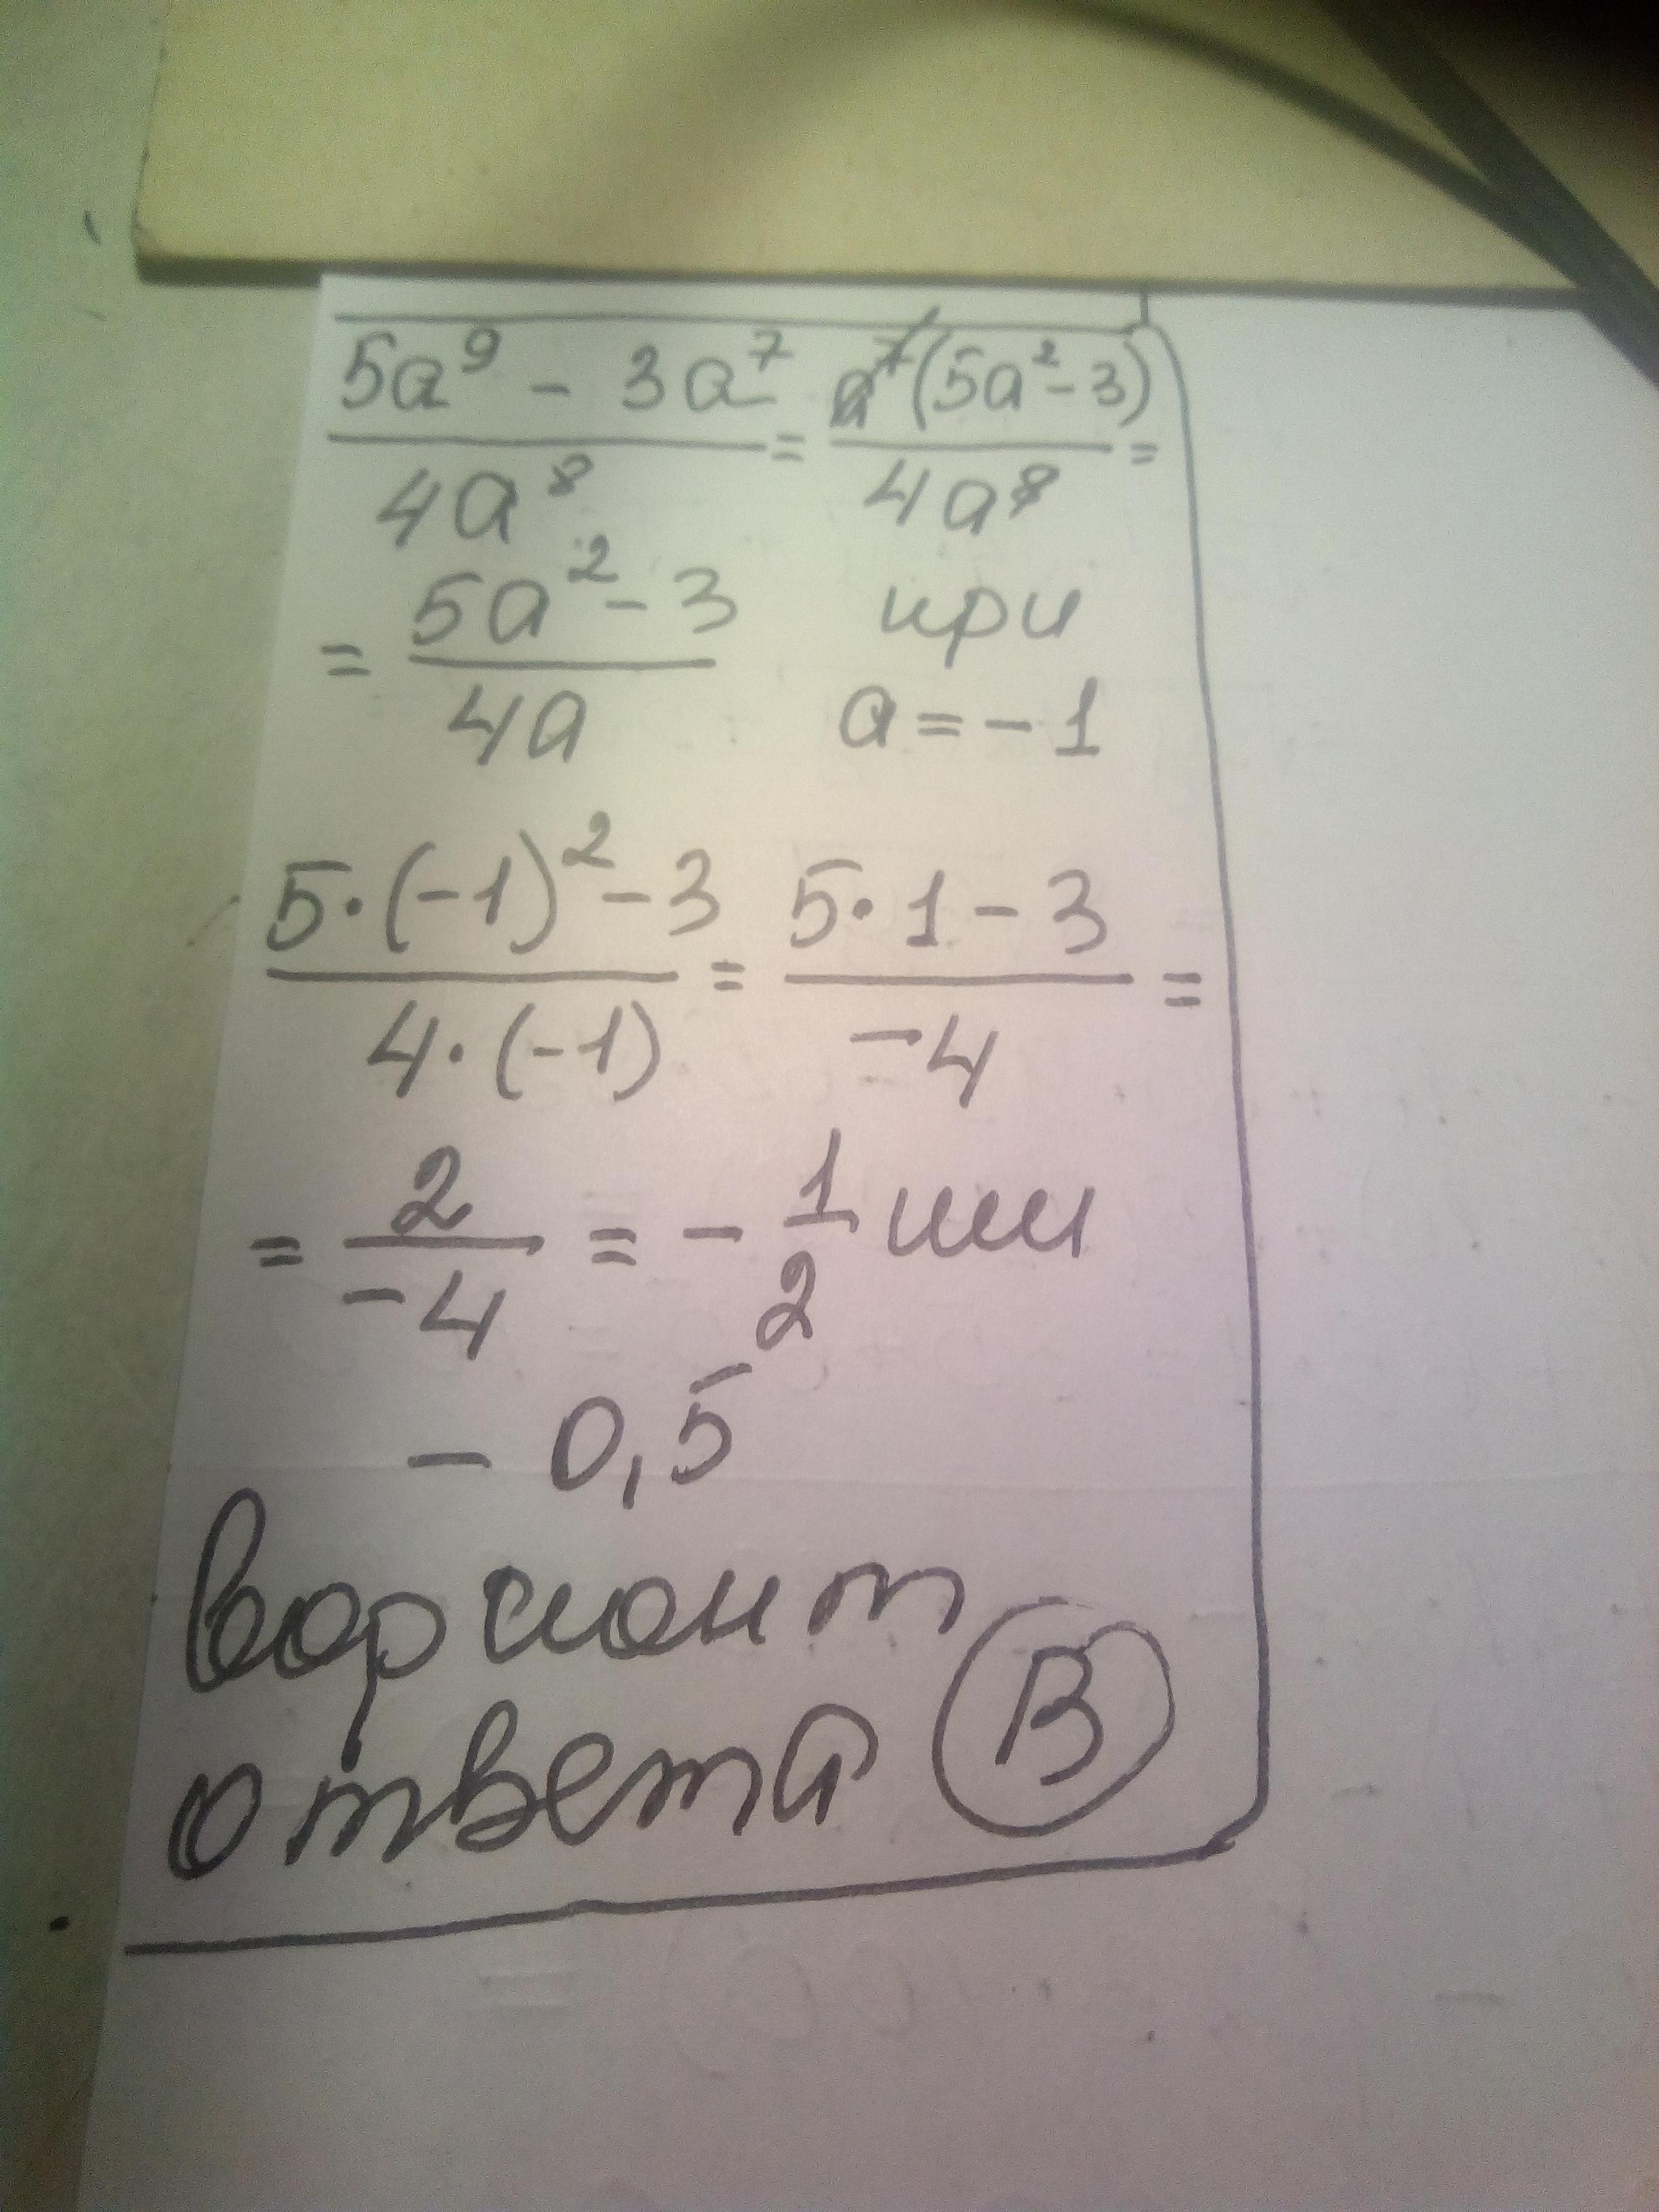 5a⁹ - 3a⁷ / 4a⁸ = a⁷(5a² - 3) / 4a⁸ =
= 5a² - 3 / 4a при a = -1
5·(-1)² - 3 / 4·(-1) = 5·1 - 3 / -4 =
= 2 / -4 = - 1/2 или
- 0,5
вариант
ответа В